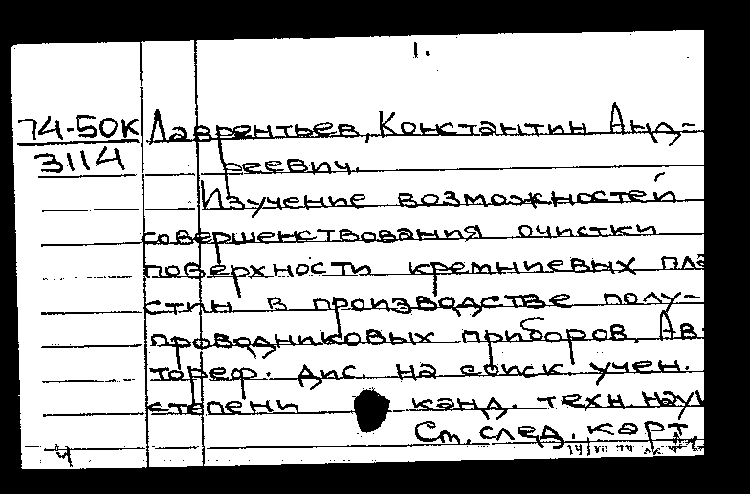 1.
74-50к Лаврентьев, Константин Анд-
3114
реевич.
Изучение возможностей
совершенствования очистки
поверхности кремниевых пла
стин в производстве полу-
проводниковых приборов. Ав-
тореф. дис. на соиск. учен.
степени канд. техн. наук
См. след. карт.
4